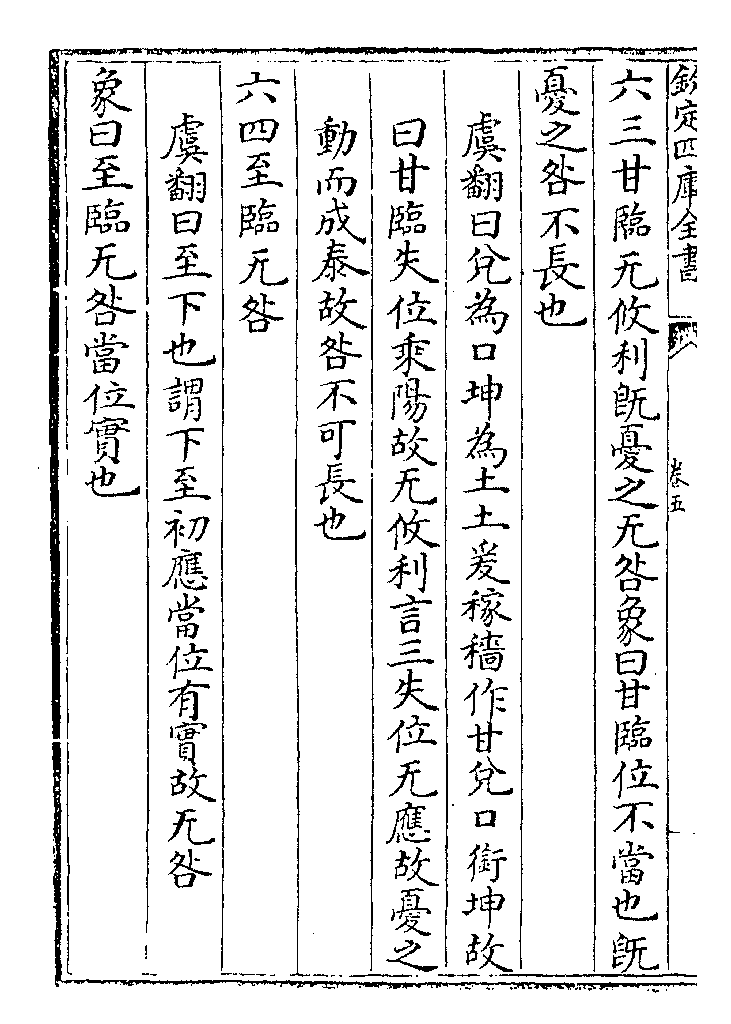 欽定四庫全書
卷五
六三甘臨无攸利旣憂之无咎象曰甘臨位不當也旣
憂之咎不長也
虞翻曰兌為口坤為土土爰稼穡作甘兌口銜坤故
曰甘臨失位乘陽故无攸利言三失位无應故憂之
動而成泰故咎不可長也
六四至臨无咎
虞翻曰至下也謂下至初應當位有實故无咎
象曰至臨无咎當位實也